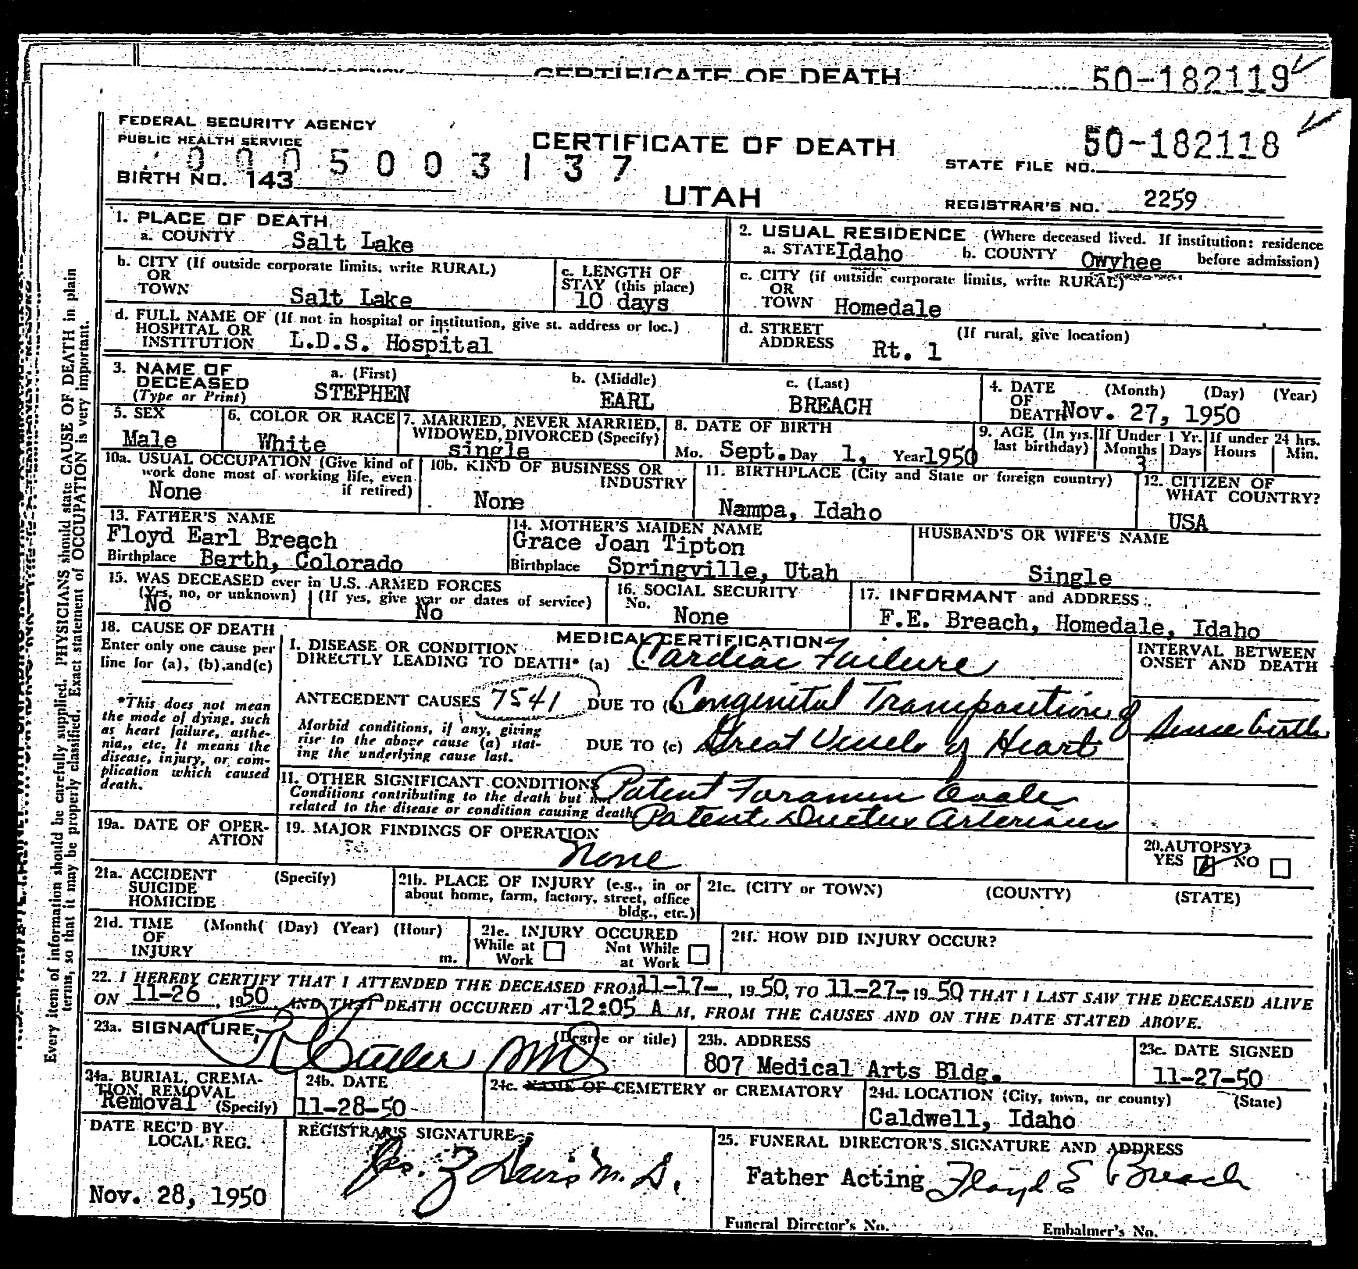 CERTIFICATE OF DEATH 50-182119
FEDERAL SECURITY AGENCY
PUBLIC HEALTH SERVICE
CERTIFICATE OF DEATH
UTAH
50-182118
STATE FILE NO.
0005003137
BIRTH NO. 143
REGISTRAR'S NO. 2259
1. PLACE OF DEATH
a. COUNTY Salt Lake
2. USUAL RESIDENCE (Where deceased lived. If institution: residence before admission)
a. STATE Idaho b. COUNTY Owyhee
b. CITY (If outside corporate limits, write RURAL)
OR
TOWN Salt Lake
c. LENGTH OF
STAY (this place)
10 days
c. CITY (if outside corporate limits, write RURAL)
OR
TOWN Homedale
d. FULL NAME OF (If not in hospital or institution, give st. address or loc.)
HOSPITAL OR
INSTITUTION L.D.S. Hospital
d. STREET (If rural, give location)
ADDRESS Rt. 1
3. NAME OF
DECEASED
(Type or Print)
a. (First) b. (Middle) c. (Last)
STEPHEN EARL BREACH
4. DATE (Month) (Day) (Year)
OF
DEATH Nov. 27, 1950
5. SEX
Male
6. COLOR OR RACE
White
7. MARRIED, NEVER MARRIED,
WIDOWED, DIVORCED (Specify)
single
8. DATE OF BIRTH
Mo. Sept. Day 1, Year 1950
9. AGE (In yrs. last birthday)
If Under 1 Yr.
Months Days
3
If under 24 hrs.
Hours Min.
10a. USUAL OCCUPATION (Give kind of
work done most of working life, even
if retired)
None
10b. KIND OF BUSINESS OR
INDUSTRY
None
11. BIRTHPLACE (City and State or foreign country)
Nampa, Idaho
12. CITIZEN OF
WHAT COUNTRY?
USA
13. FATHER'S NAME
Floyd Earl Breach
Birthplace Berth, Colorado
14. MOTHER'S MAIDEN NAME
Grace Joan Tipton
Birthplace Springville, Utah
HUSBAND'S OR WIFE'S NAME
Single
15. WAS DECEASED ever in U.S. ARMED FORCES
(Yes, no, or unknown) (If yes, give war or dates of service)
No No
16. SOCIAL SECURITY
No. None
17. INFORMANT and ADDRESS
F.E. Breach, Homedale, Idaho
18. CAUSE OF DEATH
Enter only one cause per
line for (a), (b), and (c)
*This does not mean
the mode of dying, such
as heart failure, asthe-
nia,, etc. It means the
disease, injury, or com-
plication which caused
death.
MEDICAL CERTIFICATION
I. DISEASE OR CONDITION
DIRECTLY LEADING TO DEATH* (a) Cardiac Failure
ANTECEDENT CAUSES 7541 DUE TO (b) Congenital Transposition of
Morbid conditions, if any, giving
rise to the above cause (a) stat-
ing the underlying cause last.
DUE TO (c) Great Vessels of Heart
INTERVAL BETWEEN
ONSET AND DEATH
Since birth
11. OTHER SIGNIFICANT CONDITIONS
Conditions contributing to the death but not
related to the disease or condition causing death
Patent Foramen Ovale
Patent Ductus Arteriosus
19a. DATE OF OPER-
ATION
19. MAJOR FINDINGS OF OPERATION
None
20. AUTOPSY?
YES NO
21a. ACCIDENT (Specify)
SUICIDE
HOMICIDE
21b. PLACE OF INJURY (e.g., in or
about home, farm, factory, street, office
bldg., etc.)
21c. (CITY or TOWN) (COUNTY) (STATE)
21d. TIME (Month( (Day) (Year) (Hour)
OF
INJURY m.
21e. INJURY OCCURED
While at Work Not While at Work
21f. HOW DID INJURY OCCUR?
22. I HEREBY CERTIFY THAT I ATTENDED THE DECEASED FROM 11-17-, 1950, TO 11-27-, 1950 THAT I LAST SAW THE DECEASED ALIVE
ON 11-26, 1950 AND THAT DEATH OCCURED AT 12:05 A M, FROM THE CAUSES AND ON THE DATE STATED ABOVE.
23a. SIGNATURE (Degree or title)
MD
23b. ADDRESS
807 Medical Arts Bldg.
23c. DATE SIGNED
11-27-50
24a. BURIAL, CREMA-
TION, REMOVAL
Removal (Specify)
24b. DATE
11-28-50
24c. NAME OF CEMETERY OR CREMATORY
24d. LOCATION (City, town, or county) (State)
Caldwell, Idaho
DATE REC'D BY
LOCAL REG.
Nov. 28, 1950
REGISTRAR'S SIGNATURE
Davis M.D.
25. FUNERAL DIRECTOR'S SIGNATURE AND ADDRESS
Father Acting Floyd E Breach
Funeral Director's No. Embalmer's No.
Every item of information should be carefully supplied. PHYSICIANS should state CAUSE OF DEATH in plain
terms, so that it may be properly classified. Exact statement of OCCUPATION is very important.